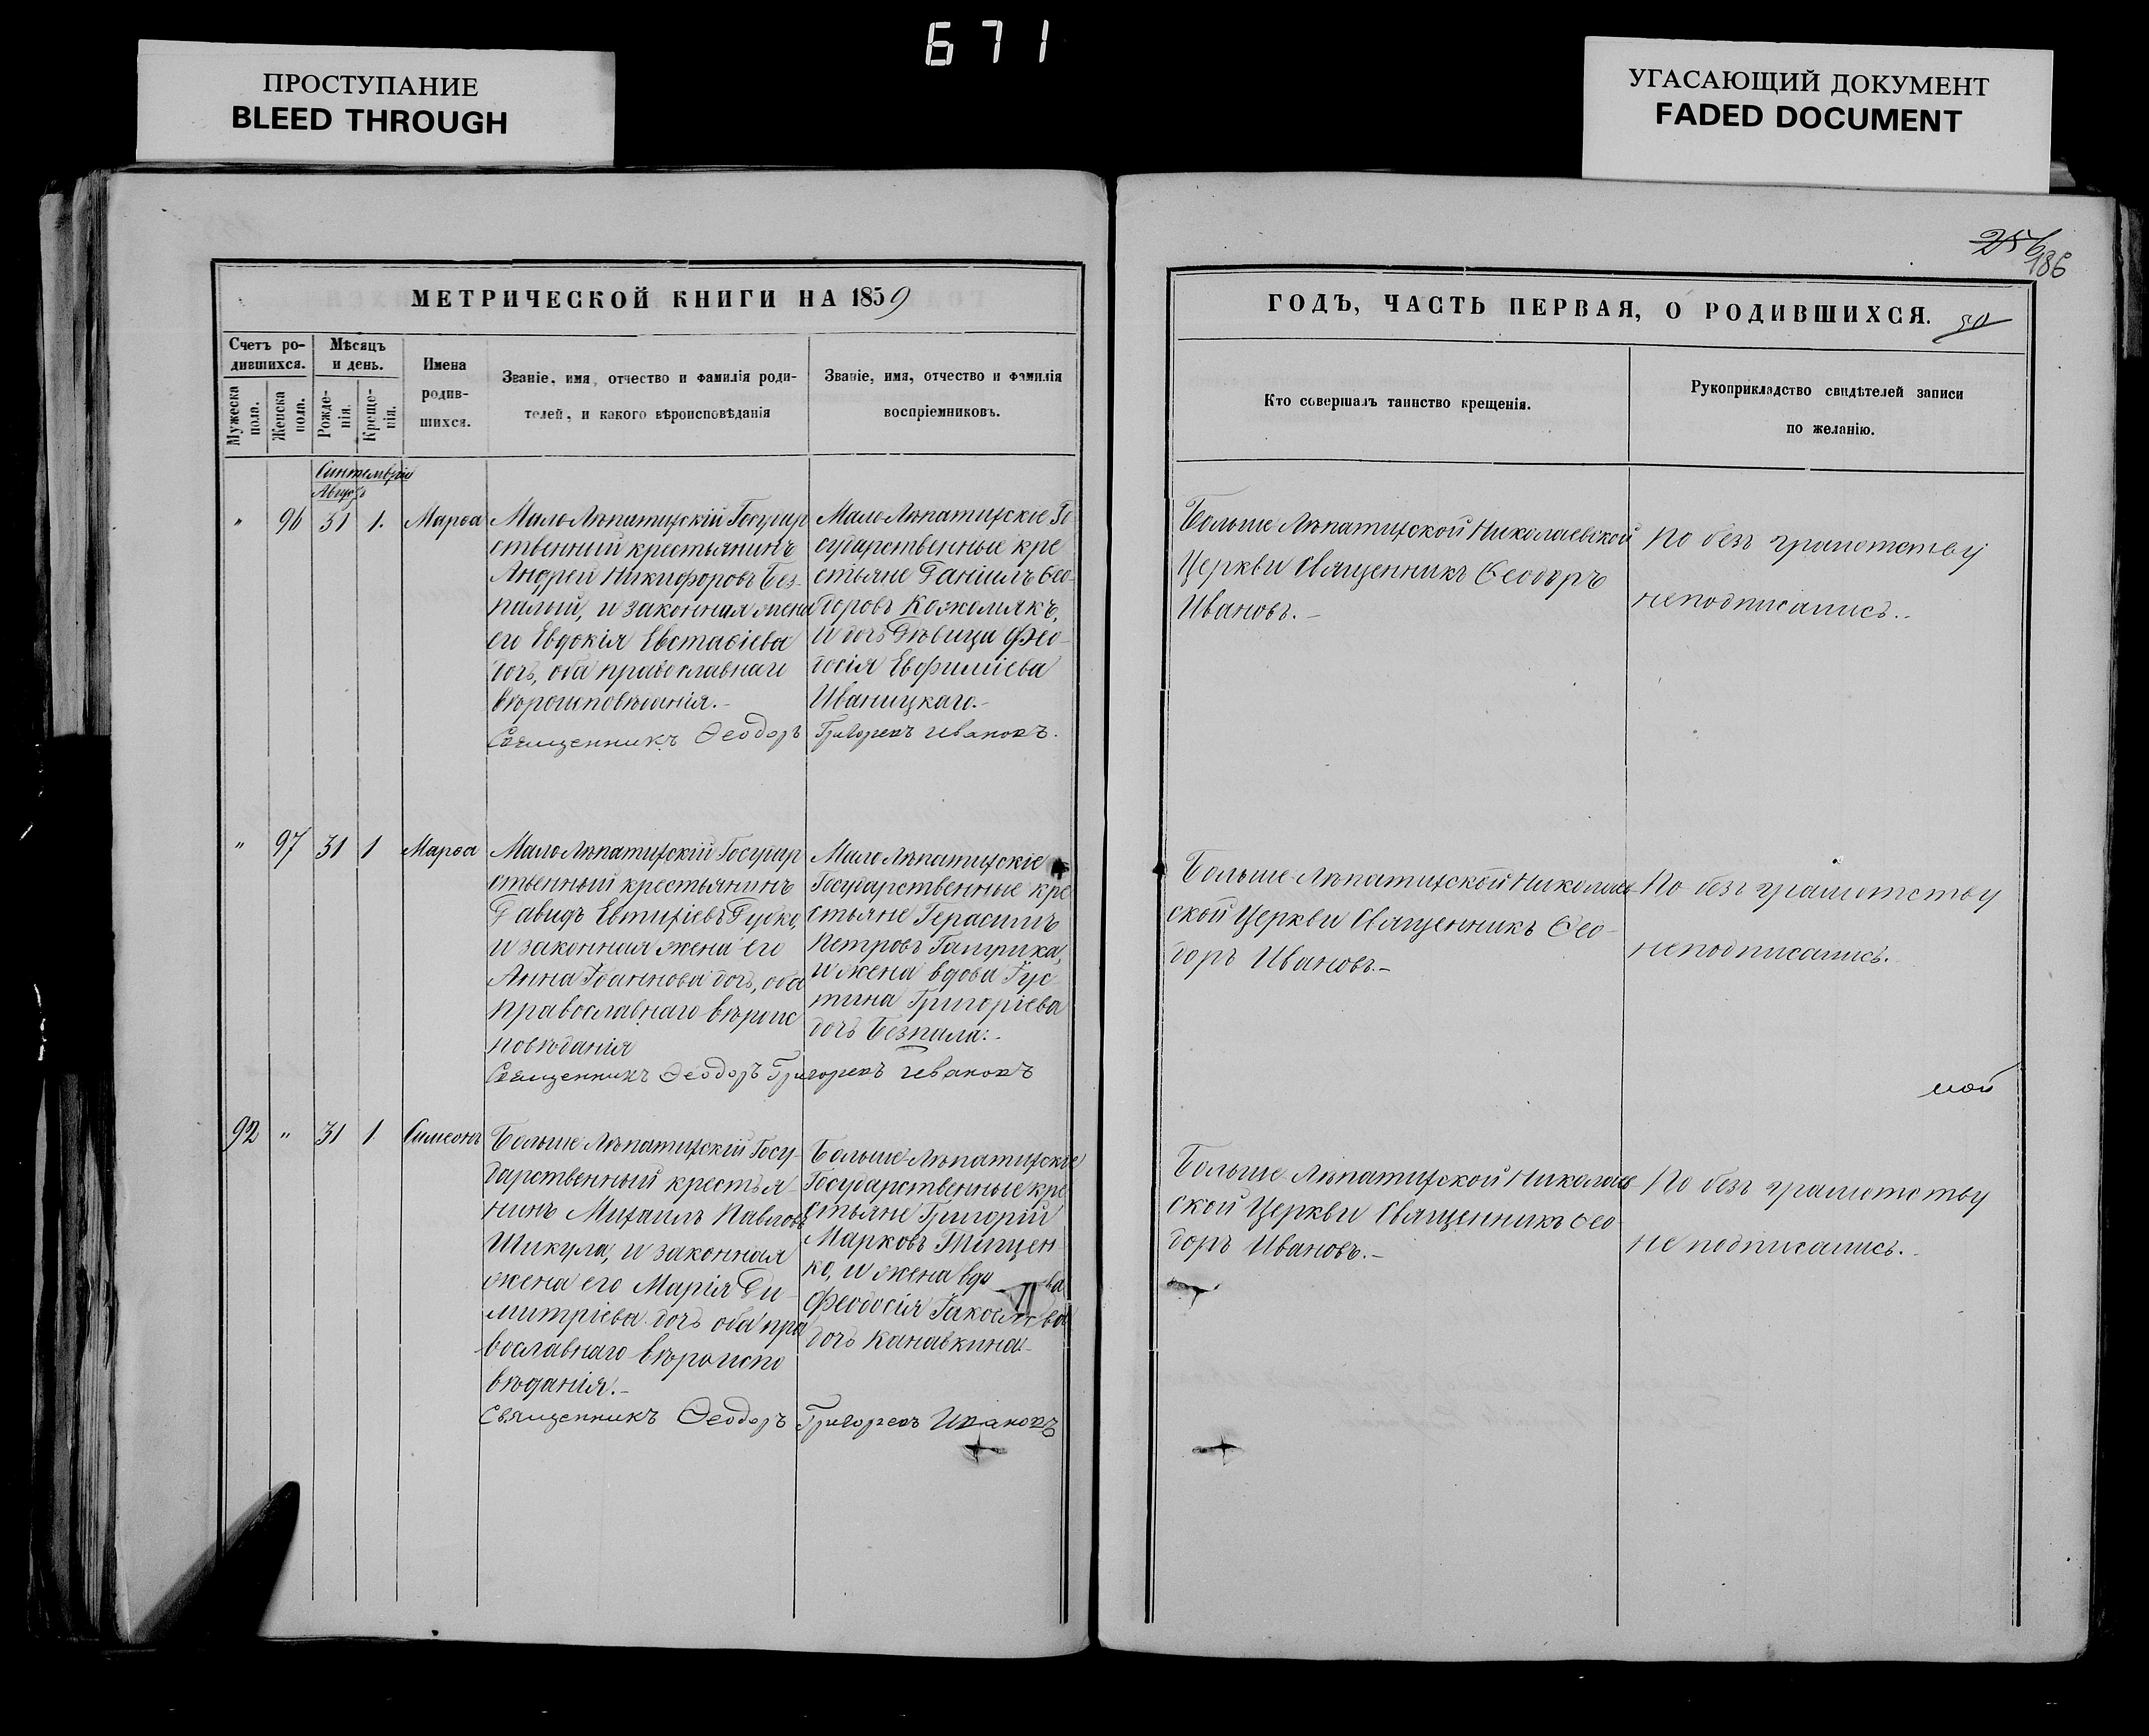 671
ПРОСТУПАНИЕ
BLEED THROUGH
УГАСАЮЩИЙ ДОКУМЕНТ
FADED DOCUMENT
256
186
МЕТРИЧЕСКОЙ КНИГИ НА 1859
Счетъ ро-
дившихся.
Мѣсяцъ
и день.
Мужеска
пола.
Женска
пола.
Рожде-
нія.
Креще-
нія.
Имена
родив-
шихся.
Званіе, имя, отчество и фамилія роди-
телей, и какого вѣроисповѣданія
Званіе, имя, отчество и фамилія
воспріемниковъ.
Сентемврій
Авгус.
" 96 31 1. Марѳа
Мало Лѣпатихскій Государ
ственный крестьянинъ
Андрей Никифоровъ Без-
палый, и законная жена
его Евдокія Евстаѳіева
дочь, оба православнаго
вѣроисповѣданія.-
Мало Лѣпатихскіе Го
сударственные кре
стьяне Даніилъ Ѳео-
доровъ Кожемякъ,
и дочь Дѣвица Фео-
досія Евфиміева
Иваницкаго.-
Священникъ Ѳеодоръ Григорьевъ Ивановъ.
" 97 31 1 Марѳа
Мало Лѣпатихскій Государ
ственный крестьянинъ
Давидъ Евтихіевъ Губко,
и законная жена его
Анна Іоаннова дочь, оба
православнаго вѣроис
повѣданія
Мало Лѣпатихскіе
Государственные кре
стьяне Герасимъ
Петровъ
и жена вдова Іус
тина Григоріева
дочь Безпала:-
Священникъ Ѳеодоръ Григорьевъ Ивановъ
92 " 31 1 Симеонъ
Больше Лѣпатихскій Госу-
дарственный крестья-
нинъ Михаилъ Павловъ
Шикула, и законная
жена его Марія Ди-
митріева дочь оба пра
вославнаго вѣроиспо
вѣданія.-
Больше-Лѣпатихскіе
Государственные кре
стьяне Григорій
Марковъ Тищен
ко, и жена вдо ва
Феодосія Іаковлева
дочь Канавкина-
Священникъ Ѳеодоръ Григорьевъ Ивановъ
ГОДЪ, ЧАСТЬ ПЕРВАЯ, О РОДИВШИХСЯ.
Кто совершалъ таинство крещенія.
Рукоприкладство свидѣтелей записи
по желанію.
Больше Лѣпатихской Николаевской
Церкви Священникъ Ѳеодоръ
Ивановъ.-
По безъ грамотству
неподписались.-
Больше-Лѣпатихской Николаев
ской Церкви Священникъ Ѳео-
доръ Ивановъ.-
По безъ грамотству
неподписались.
мой
Больше Лѣпатихской Николаев
ской Церкви Священникъ Ѳео
доръ Ивановъ.-
По безъ грамотству
не подписались.-